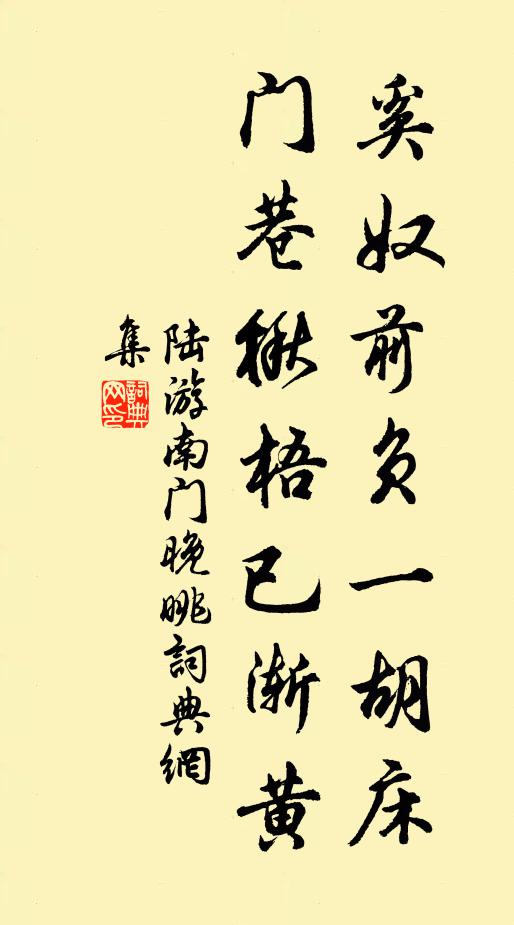 奚奴前负一胡床
门巷楸梧已渐黄
陆游南门晚眺詞典網
集
詞典网印